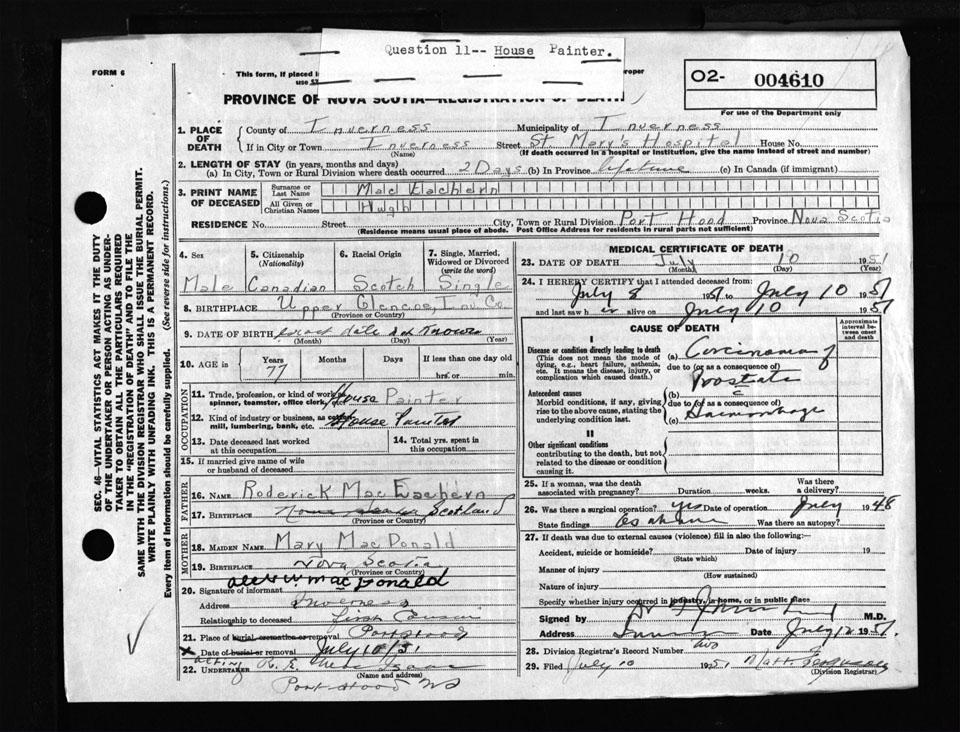 Question 11-- House Painter.
FORM 6
This form, if placed i
use
roper
O2- 004610
For use of the Department only
PROVINCE OF NOVA SCOTIA—REGISTRATION OF DEATH
1. PLACE OF DEATH { County of Inverness Municipality of Inverness
If in City or Town Inverness Street St. Mery's Hospital House No.
(Name) (If death occurred in a hospital or institution, give the name instead of street and number)
2. LENGTH OF STAY (in years, months and days)
(a) In City, Town or Rural Division where death occurred 2 Days (b) In Province lifetime (c) In Canada (if immigrant)
3. PRINT NAME OF DECEASED { Surname or Last Name Mac Eachern
All Given or Christian Names Hugh
RESIDENCE No. Street City, Town or Rural Division Port Hood Province Nova Scotia
(Residence means usual place of abode. Post Office Address for residents in rural parts not sufficient)
SEC. 46—VITAL STATISTICS ACT MAKES IT THE DUTY
OF THE UNDERTAKER OR PERSON ACTING AS UNDER-
TAKER TO OBTAIN ALL THE PARTICULARS REQUIRED
IN THE "REGISTRATION OF DEATH" AND TO FILE THE
SAME WITH THE DIVISION REGISTRAR WHO SHALL ISSUE THE BURIAL PERMIT.
WRITE PLAINLY WITH UNFADING INK. THIS IS A PERMANENT RECORD.
Every item of information should be carefully supplied. (See reverse side for instructions.)
4. Sex 5. Citizenship (Nationality) 6. Racial Origin 7. Single, Married, Widowed or Divorced (write the word)
Male Canadian Scotch Single
8. BIRTHPLACE Upper Glencoe, Inv. Co.
(Province or Country)
9. DATE OF BIRTH exact date not known
(Month) (Day) (Year)
10. AGE in Years Months Days If less than one day old
77 hrs. or min.
OCCUPATION
11. Trade, profession, or kind of work as spinner, teamster, office clerk, House Painter
12. Kind of industry or business, as cotton mill, lumbering, bank, etc. House Painter
13. Date deceased last worked at this occupation 14. Total yrs. spent in this occupation
15. If married give name of wife or husband of deceased
FATHER
16. NAME Roderick Mac Eachern
17. BIRTHPLACE Nova Scotia Scotland
(Province or Country)
MOTHER
18. MAIDEN NAME Mary Mac Donald
19. BIRTHPLACE Nova Scotia
(Province or Country)
20. Signature of informant MacDonald
Address Inverness
Relationship to deceased first Cousin
21. Place of burial cremation or removal Port Hood
x Date of burial or removal July 10/51
acting
22. UNDERTAKER R. E. Isaac
(Name and address)
Port Hood NS
MEDICAL CERTIFICATE OF DEATH
23. DATE OF DEATH July 10 1951
(Month) (Day) (Year)
24. I HEREBY CERTIFY that I attended deceased from:
July 8 1951 to July 10 1951
and last saw h im alive on July 10 1951
CAUSE OF DEATH
Approximate interval between onset and death
I
Disease or condition directly leading to death (a) Carcinoma of
(This does not mean the mode of dying, e.g., heart failure, asthenia, etc. It means the disease, injury, or complication which caused death.)
due to (or as a consequence of)
Prostate
Antecedent causes (b) c
Morbid conditions, if any, giving rise to the above cause, stating the underlying condition last.
due to (or as a consequence of)
(c) Haemorrhage
II
Other significant conditions
contributing to the death, but not related to the disease or condition causing it.
25. If a woman, was the death associated with pregnancy? Duration weeks. Was there a delivery?
26. Was there a surgical operation? yes Date of operation July 1948
State findings as above Was there an autopsy?
27. If death was due to external causes (violence) fill in also the following:—
Accident, suicide or homicide? Date of injury 19
(State which)
Manner of injury
(How sustained)
Nature of injury
Specify whether injury occurred in industry, in home, or in public place
Signed by M.D.
Address Date July 12 1951.
28. Division Registrar's Record Number
29. Filed July 10 1951
(Division Registrar)